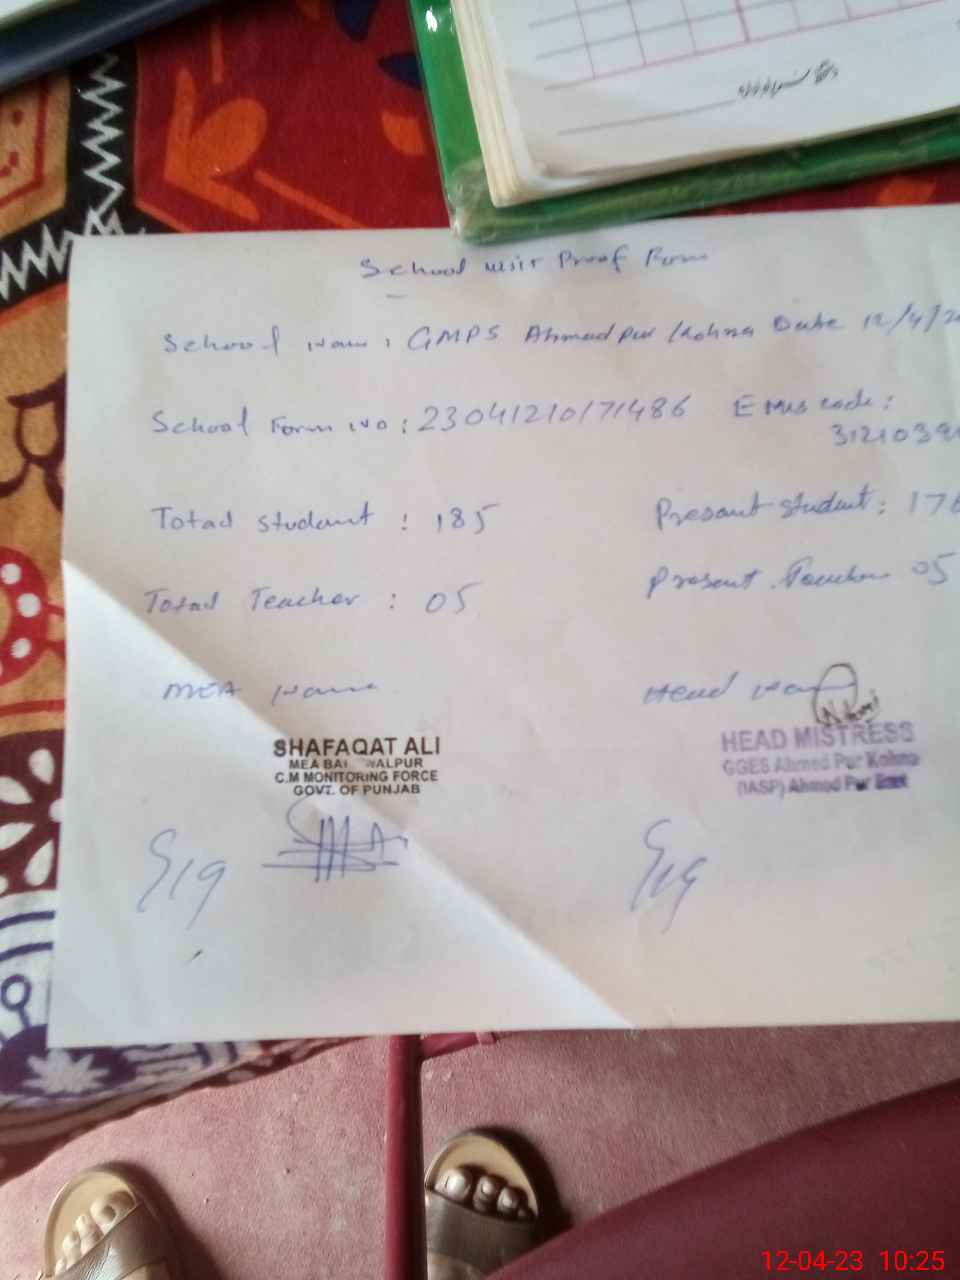 School visit Proof Form
School Name : GMPS Ahmad pur Kohna Date 12/4/20
School Form No : 23041210171486 EMIS code :
3121039
Total student : 185 Present student : 176
Total Teacher : 05 Present Teacher 05
MEA Name Head Name
SHAFAQAT ALI
MEA BAHAWALPUR
C.M MONITORING FORCE
GOVT. OF PUNJAB
HEAD MISTRESS
GGES Ahmed Pur Kohna
(IASP) Ahmod Pur East
Sig Sig
12-04-23 10:25